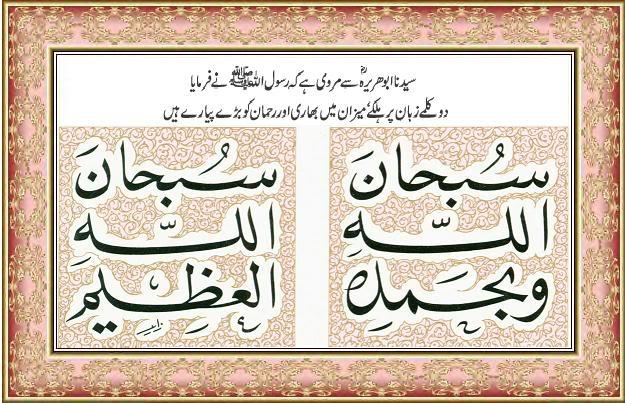 سیدنا ابوھریرہؓ سے مروی ہے کہ رسول اللہ ﷺ نے فرمایا
دو کلمے زبان پر ہلکے، میزان میں بھاری اور رحمان کو بڑے پیارے ہیں
سُبحانَ
اللّٰہِ
وبحمدہ
سُبحانَ
اللّٰہِ
العظِیم